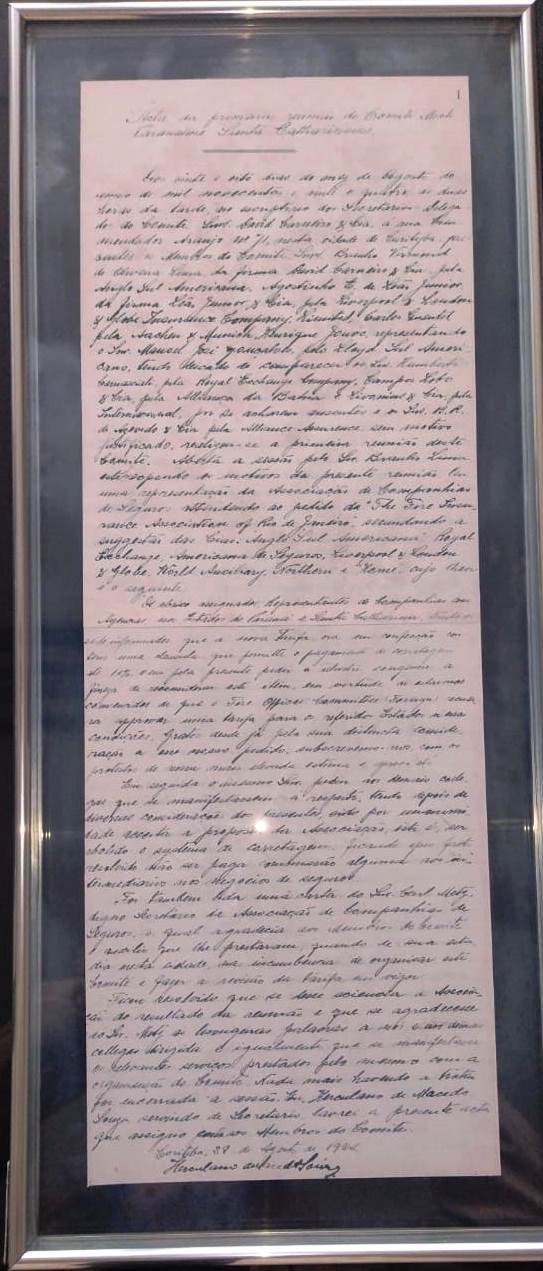 1
Acta da primeira reunião do Comité Mixto
Paranaense Santa Catharinense.
Aos vinte e oito dias do mez de Agosto do
anno de mil novecentos e vinte e quatro, as duas
horas da tarde, no escriptorio dos Secretarios-Delega
do do Comité Snrs. David Carneiro & Cia, á rua Com
mendador Araujo nº 71, nesta cidade de Curityba, pre
sentes os Membros do Comité, Snrs. Brenno
de Oliveira Lima da firma David Carneiro & Cia, pela
Anglo Sul Americana, Agostinho E. de Leão Junior
da firma Leão Junior & Cia, pela Liverpool & London
& Globe Insurance Company,
pela Aachen & Munich, Henrique representando
o Snr. Manoel José Gonçalves, pelo Lloyd Sul Ameri-
cano, tendo deixado de comparecer os Snrs. Humberto
pela Royal Exchange Company, Campos Lobo
& Cia, pela Alliança da Bahia e & Cia, pela
Internacional, por se acharem ausentes e os Snrs. B. R.
de Azevedo & Cia pela Alliance Assurance sem motivo
justificado, realizou-se a primeira reunião deste
Comité. Aberta a sessão pelo Snr. Lima
os motivos da presente reunião leu
uma representação da Associação de Companhias
de Seguros attendendo ao pedido da "The Fire Insu-
rance Association of Rio de Janeiro", secundando a
suggestão das Cias. Anglo Sul Americana, Royal
Exchange, Americana de Seguros, Liverpool & London
& Globe, World Auxiliary, Northern e "Home" cujo theor
é o seguinte
Os abaixo assignados Representantes de Companhias com
Agencias no Estado do Paraná e Santa Catharina,
informados que a nova Tarifa ora em confecção con
tem uma clausula que permitte o pagamento de corretagem
de 10% vem pela presente pedir a
fineza de reconsiderar este item, em virtude de estarmos
convencidos de que o Fire Offices Committee (Foreign)
approvar uma tarifa para o referido Estado nessas
condições. Gratos desde já pela sua distincta conside
ração a esse nosso pedido, subscrevemo-nos com os
protestos de nossa mais elevada estima e
Em seguida o mesmo Snr. pediu aos demais colle
gas que se manifestassem a respeito, tendo após de
considerações dos presentes, sido por unanimi
dade acceita a proposta da Associação, isto é, ser
abolido o systema de corretagem, ficando que foi
resolvido não ser paga commissão alguma aos in-
termediarios nos negocios de seguros.
Foi tambem lida uma carta do Snr. Carl Metz,
digno Secretario da Associação de Companhias de
Seguros, a qual agradecia aos Membros do Comité
o auxilio que lhe prestaram, quando de sua esta
dia nesta cidade, na incumbencia de organizar este
Comité e fazer a revisão da tarifa em vigor.
Ficou resolvido que se desse sciencia a Associa-
ção do resultado da reunião e que se agradecesse
ao Snr. Metz, as lisongeiras palavras a nós e aos demais
collegas dirigida e igualmente que se manifestasse
os relevantes serviços prestados pelo mesmo com a
organisação do Comité. Nada mais havendo a tratar
foi encerrada a sessão. Eu, Herculano de Macedo
Souza servindo de Secretario lavrei a presente acta
que assigno com os Membros do Comité.
Corityba, 28 de Agosto de 1924
Herculano de Macedo Souza